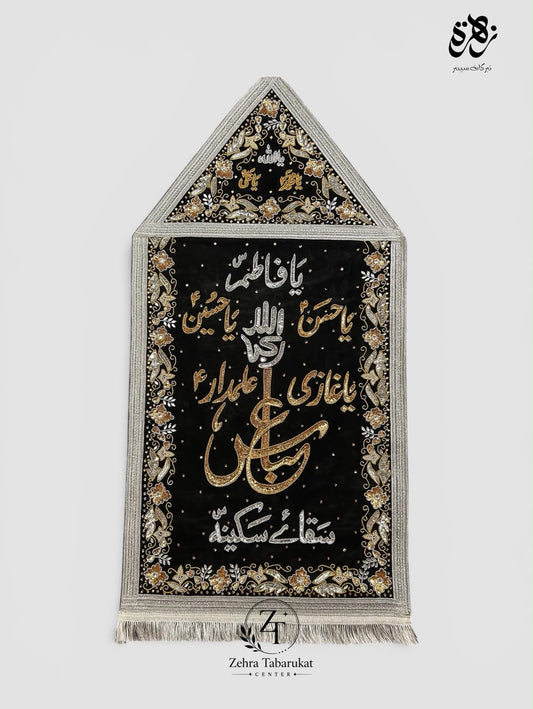 زهرة
تبرکات سینٹر
یااللہ
یامحمد یاعلی
یَا فَاطمہؑ
یَا حَسَنؑ یَا حُسینؑ
یَا غازی علمدارؑ
عباس
سَقائے سَکینہؑ
ZT
Zehra Tabarukat
CENTER